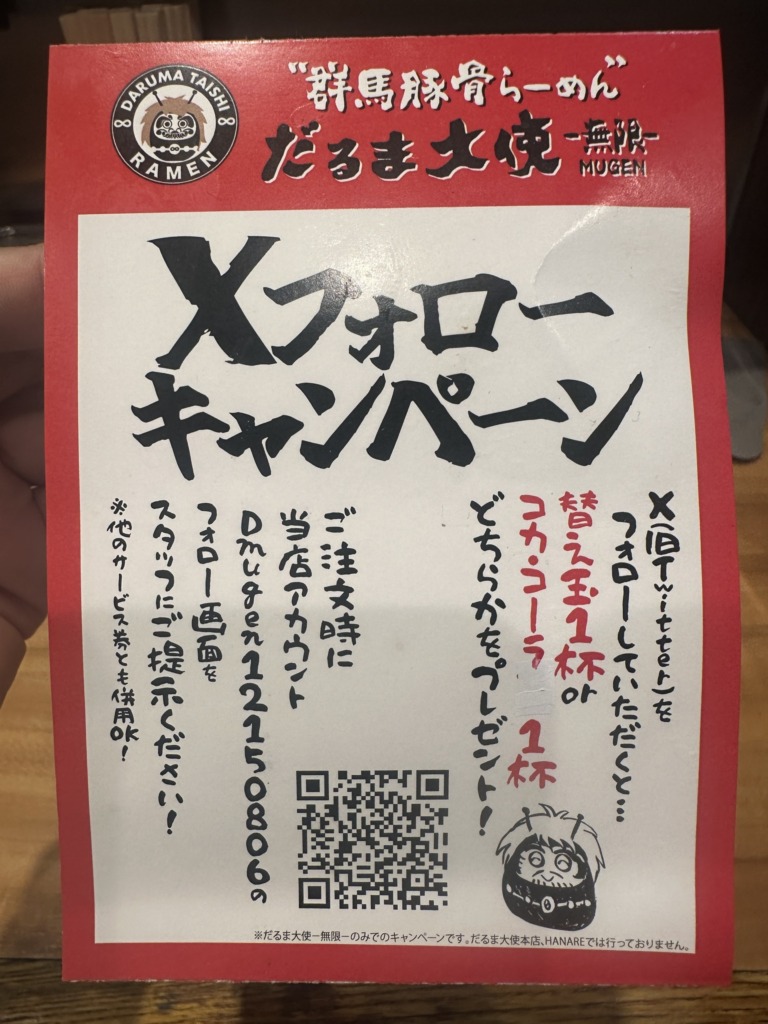 DARUMA TAISHI
RAMEN
"群馬豚骨らーめん"
だるま大使
-無限-
MUGEN
Xフォロー
キャンペーン
X(旧Twitter)を
フォローしていただくと…
替え玉1杯or
コカ・コーラ 1杯
どちらかをプレゼント!
ご注文時に
当店アカウント
Dmugen12150806の
フォロー画面を
スタッフにご提示ください!
※他のサービス券とも併用OK!
※だるま大使ー無限ーのみでのキャンペーンです。だるま大使本店、HANAREでは行っておりません。